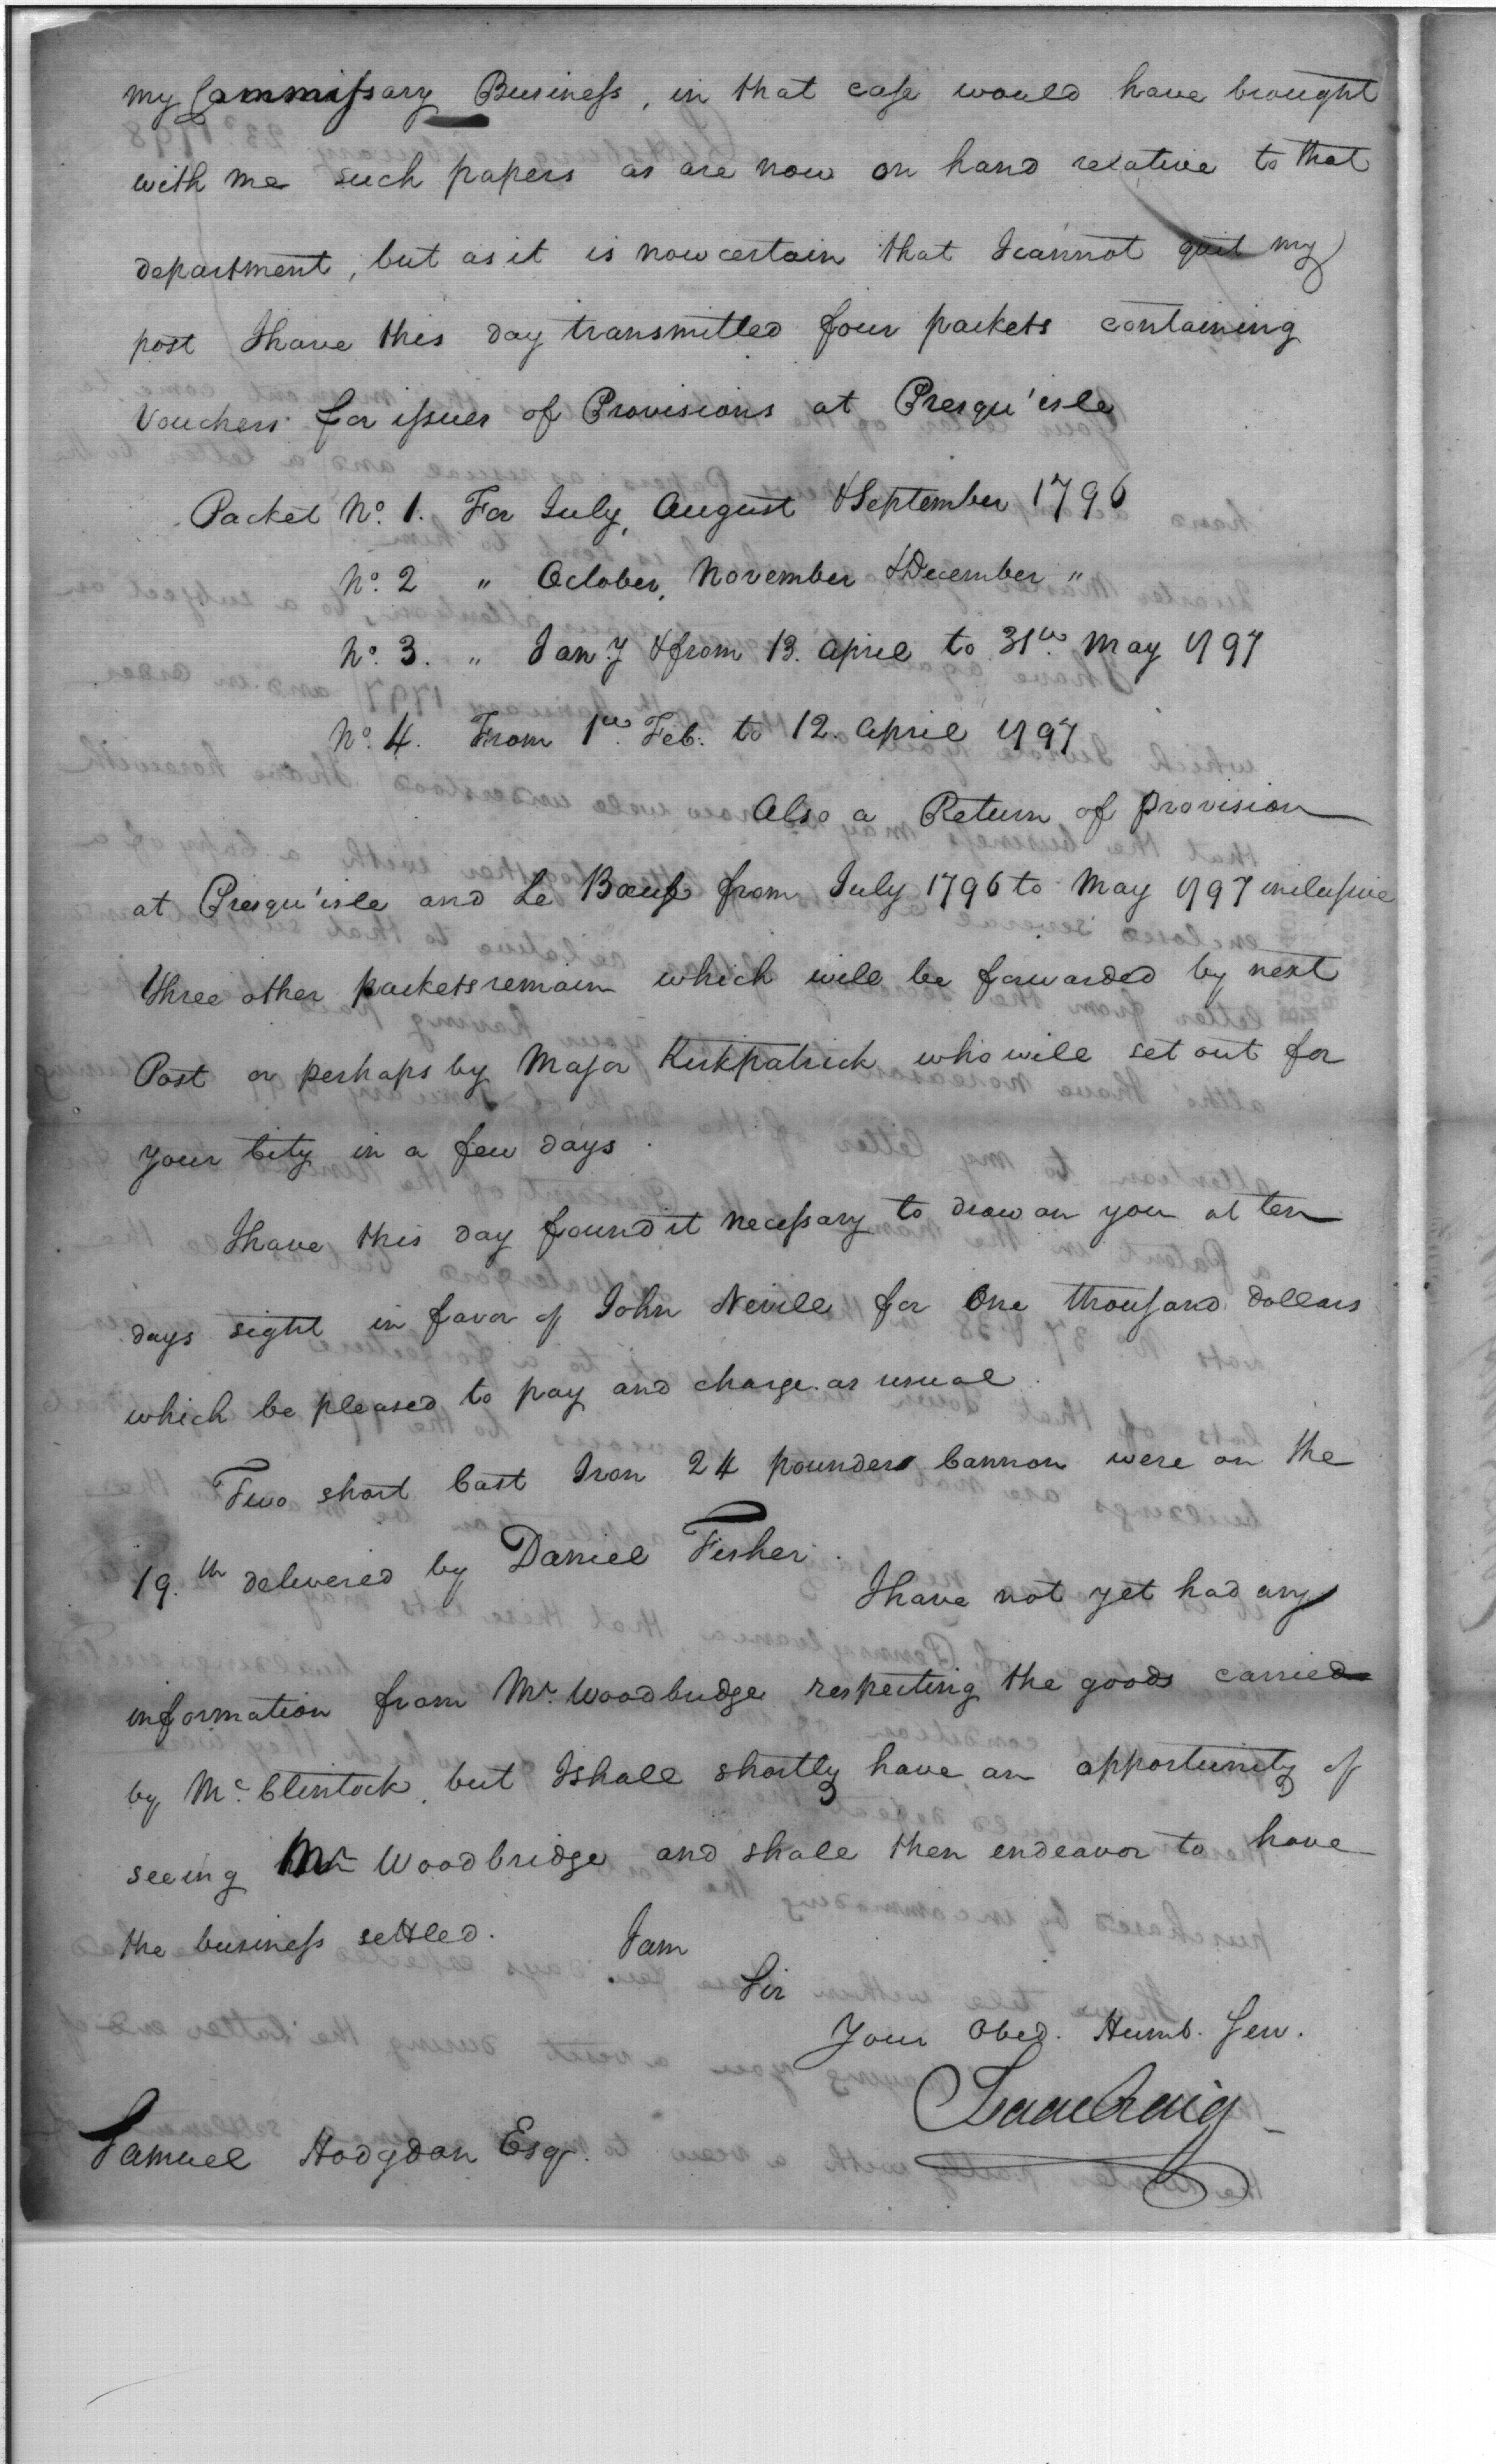 my Commissary Business, in that case would have brought
with me such papers as are now on hand relative to that
department, but as it is now certain that I cannot quit my
post I have this day transmitted four packets containing
Vouchers for issues of Provisions at Presqu'isle
Packet No. 1. For July, August & September 1796
No. 2 " October, November & December "
No. 3. " Jany & from 13. April to 31st. May 1797
No. 4. From 1st. Feb. to 12. April 1797
Also a Return of Provision
at Presqu'isle and Le Bœuf from July 1796 to May 1797 inclusive
Three other packets remain which will be forwarded by next
Post or perhaps by Major Kirkpatrick who will set out for
your City in a few days.
I have this day found it necessary to draw on you at ten
days sight in favor of John Nevill for One thousand dollars
which be pleased to pay and charge as usual.
Two short Cast Iron 24 pounders Cannon were on the
19.th delivered by Daniel Fisher.
I have not yet had any
information from Mr. Woodbridge respecting the goods carried
by Mc. Clintock, but I shall shortly have an opportunity of
seeing Mr Woodbridge and shall then endeavor to have
the business settled.
I am
Sir
Your Obed. Humb. Serv.
Isaac Craig
Samuel Hodgdon Esqr.